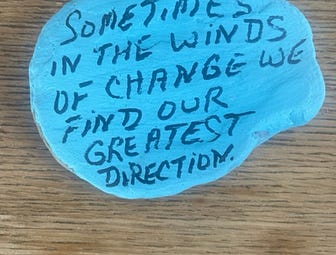 SOMETIMES
IN THE WINDS
OF CHANGE WE
FIND OUR
GREATEST
DIRECTION.